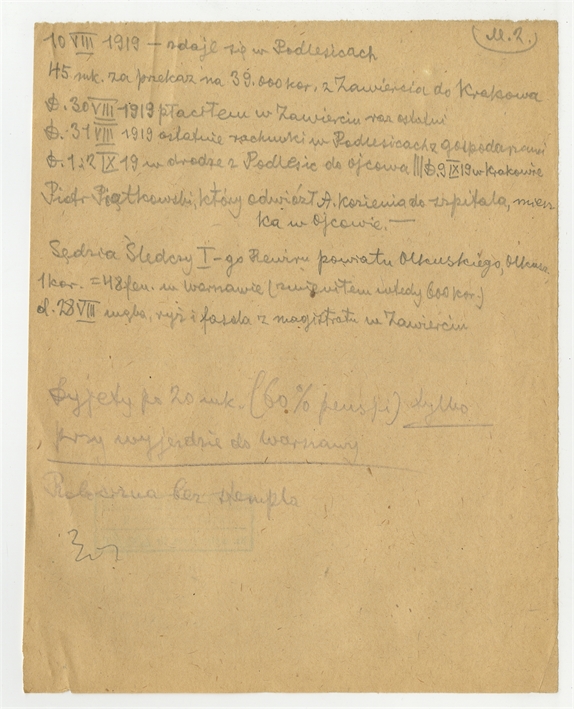 (M.2.)
10 VIII 1919 – zdaje się w Podlesicach
45 mk. za przekaz na 39.000 kor. z Zawiercia do Krakowa
D. 30 VIII 1919 płaciłem w Zawierciu raz ostatni
D. 31 VIII 1919 ostatnie rachunki w Podlesicach z gospodarzami
D. 1 i 2 IX 19 w drodze z Podlesic do Ojcowa ||| D. 9 IX 19 w Krakowie
Piotr Piątkowski, który odwiózł A. Kozienia do szpitala, miesz
ka w Ojcowie. —
Sędzia Śledczy I-go Rewiru powiatu Olkuskiego, Olkusz.
1 kor. = 48 fen. w Warszawie (zmieniłem wtedy 600 kor.)
d. 28 VIII mąka, ryż i fasola z magistratu w Zawierciu
Dyjety po 20 mk. (60% pensji) tylko
przy wyjeździe do Warszawy
bez stempla